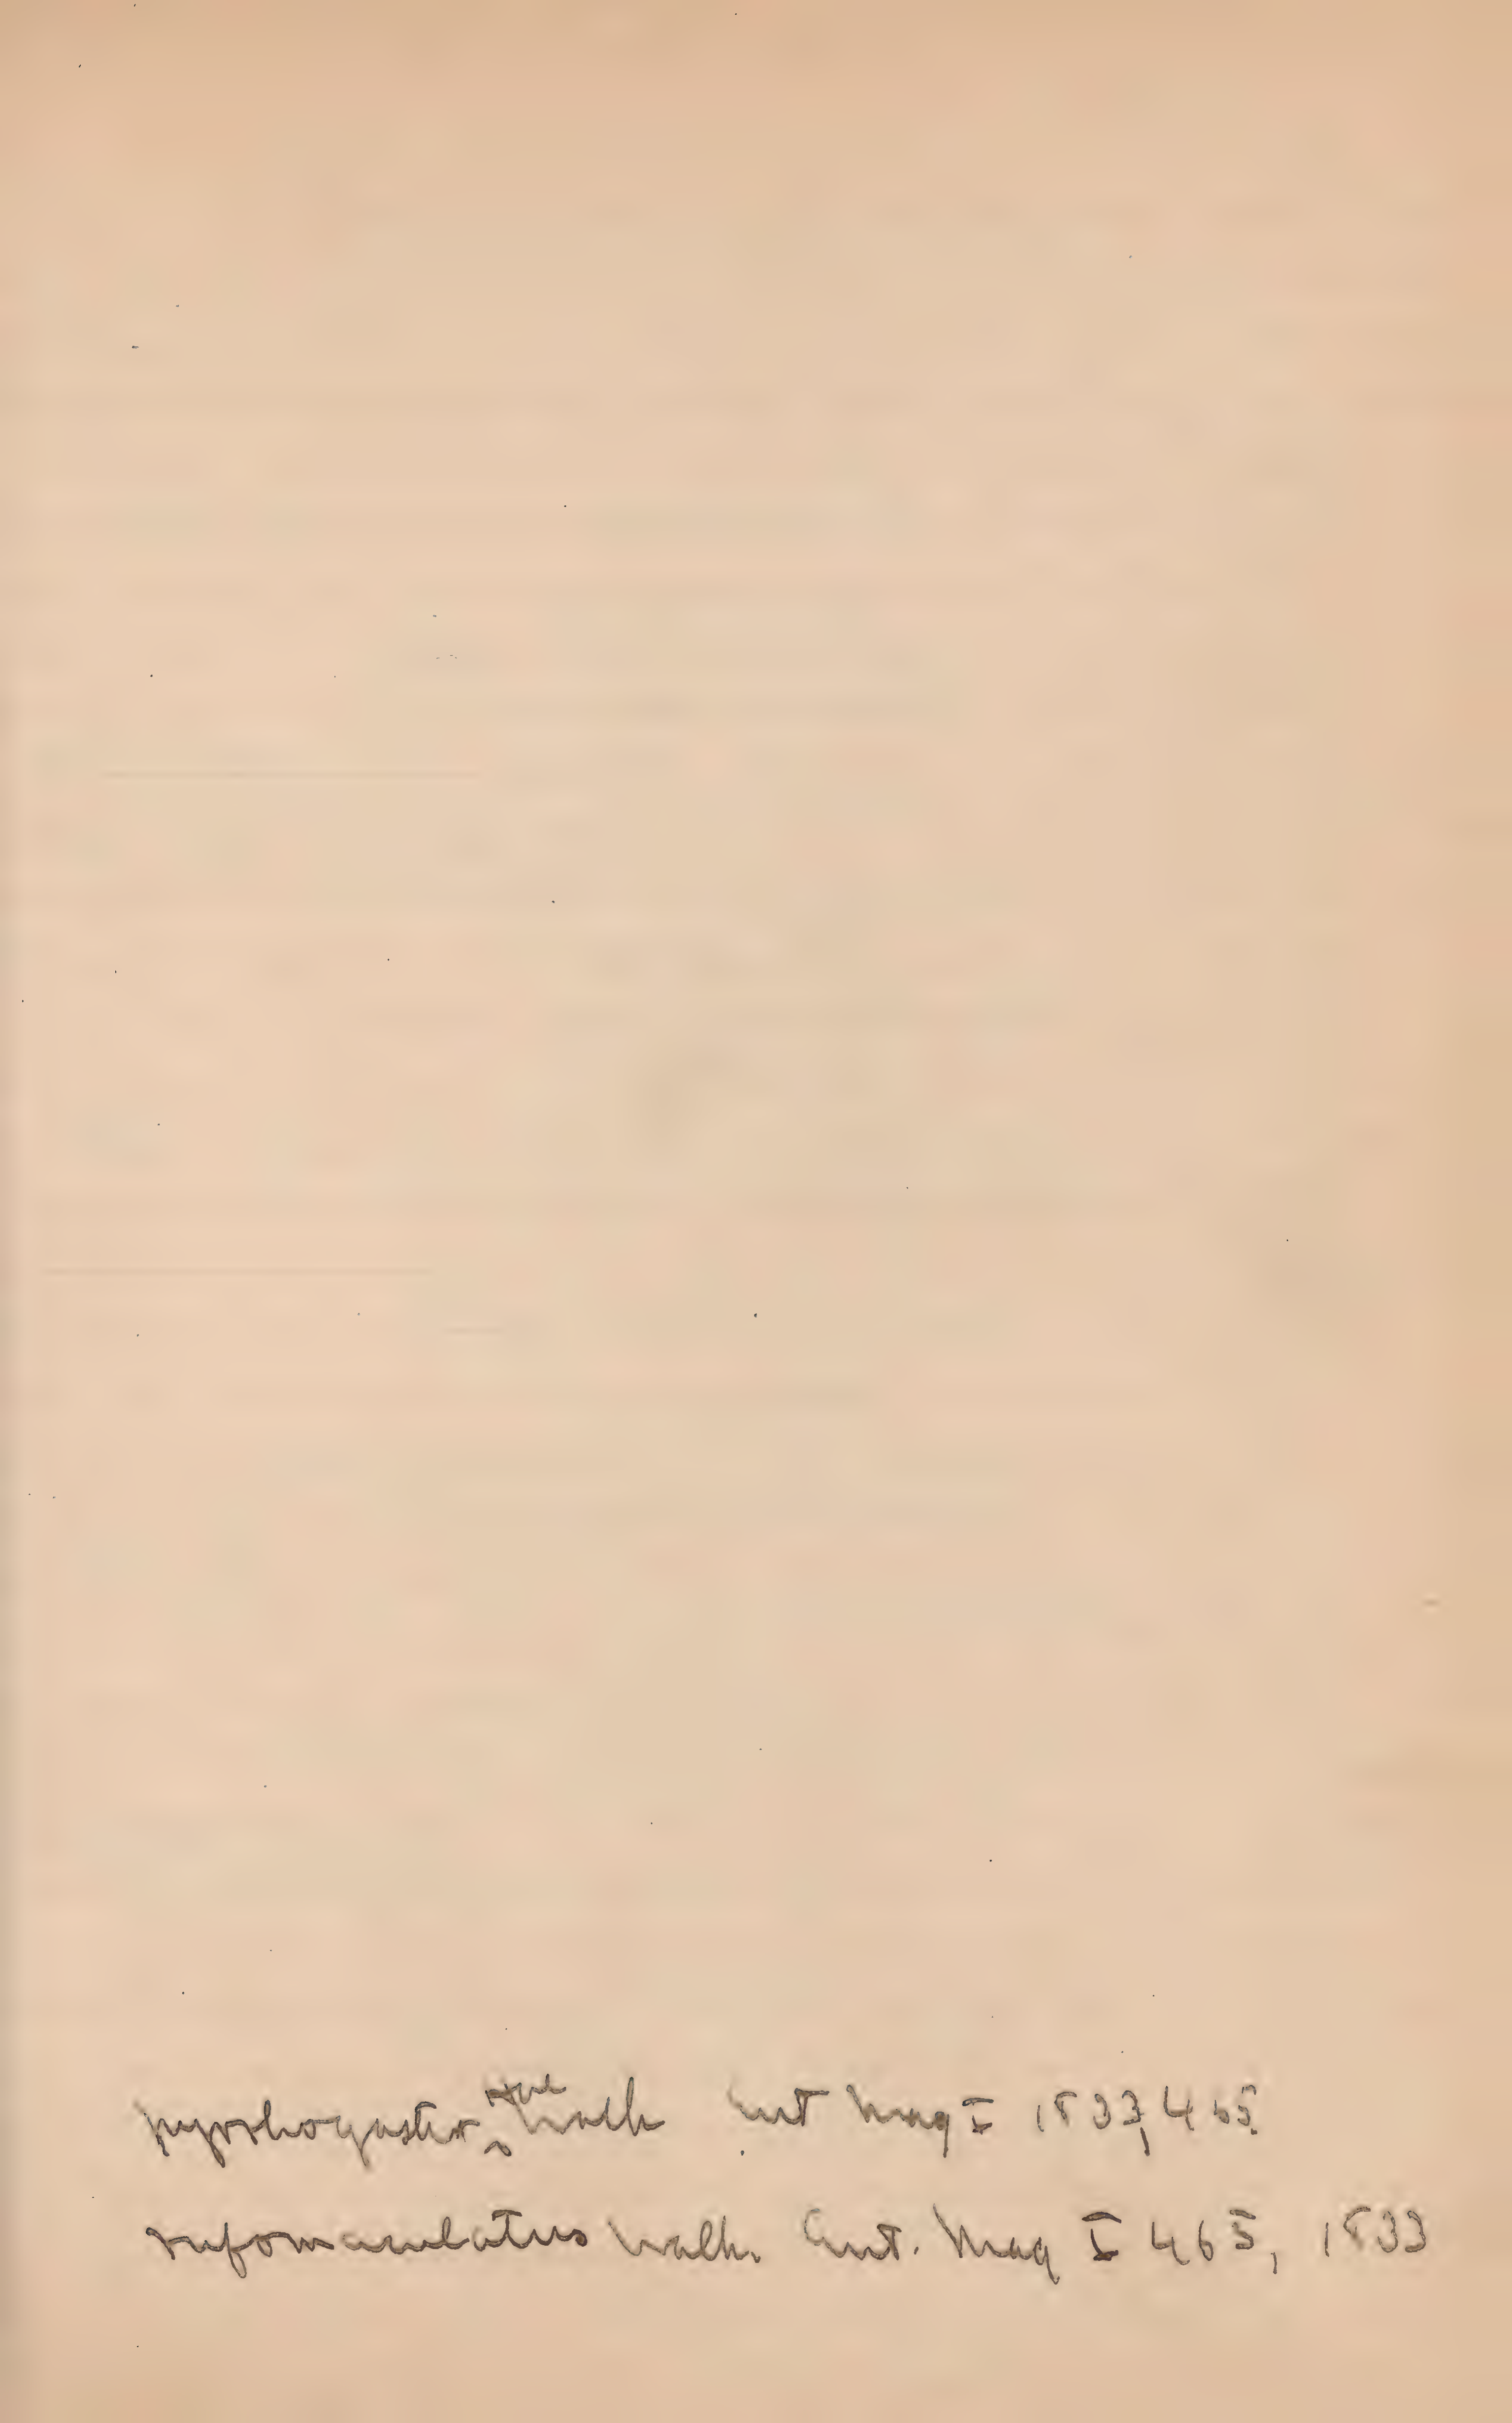 pyrrhogaster Walk Ent Mag I 1833, 465
rufomaculatus Walk. Ent. Mag I 465, 1833